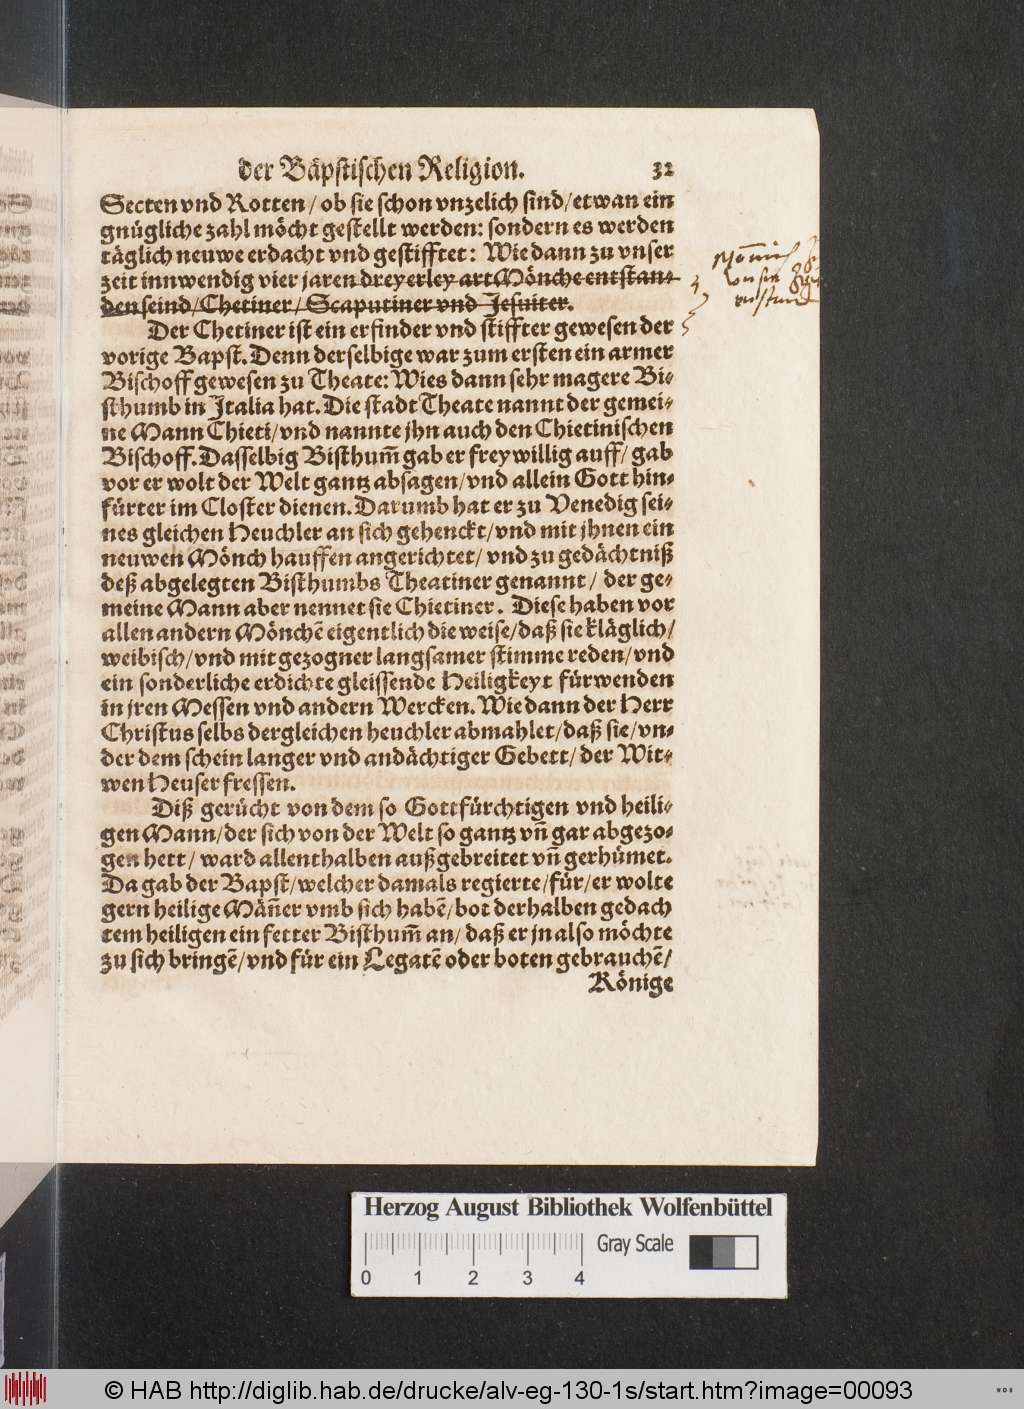 der Bäpstischen Religion. 32
Secten vnd Rotten / ob sie schon vnzelich sind / etwan ein
gnügliche zahl möcht gestellt werden: sondern es werden
täglich neuwe erdacht vnd gestifftet: Wie dann zu vnser
zeit innwendig vier jaren dreyerley art Mönche entstan⸗
den seind / Chetiner / Scaputiner vnd Jesuiter.
Der Chetiner ist ein erfinder vnd stiffter gewesen der
vorige Bapst. Denn derselbige war zum ersten ein armer
Bischoff gewesen zu Theate: Wies dann sehr magere Bi⸗
sthumb in Italia hat. Die stadt Theate nannt der gemei⸗
ne Mann Chieti / vnd nannte jhn auch den Chietinischen
Bischoff. Dasselbig Bisthum̃ gab er frey willig auff / gab
vor er wolt der Welt gantz absagen / vnd allein Gott hin⸗
fürter im Closter dienen. Darumb hat er zu Venedig sei⸗
nes gleichen Heuchler an sich gehenckt / vnd mit jhnen ein
neuwen Mönch hauffen angerichtet / vnd zu gedächtniß
deß abgelegten Bisthumbs Theatiner genannt / der ge⸗
meine Mann aber nennet sie Chietiner. Diese haben vor
allen andern Mönchẽ eigentlich die weise / daß sie kläglich /
weibisch / vnd mit gezogner langsamer stimme reden / vnd
ein sonderliche erdichte gleissende Heiligkeyt fürwenden
in jren Messen vnd andern Wercken. Wie dann der Herr
Christus selbs dergleichen heuchler abmahlet / daß sie / vn⸗
der dem schein langer vnd andächtiger Gebett / der Wit⸗
wen Heuser fressen.
Diß gerücht von dem so Gottfürchtigen vnd heili⸗
gen Mann / der sich von der Welt so gantz vñ gar abgezo⸗
gen hett / ward allenthalben außgebreitet vñ gerhümet.
Da gab der Bapst / welcher damals regierte / für / er wolte
gern heilige Mäñer vmb sich habẽ / bot derhalben gedach
tem heiligen ein fetter Bisthum̃ an / daß er jn also möchte
zu sich bringẽ / vnd für ein Legatẽ oder boten gebrauchẽ /
Könige
Herzog August Bibliothek Wolfenbüttel
Gray Scale
0 1 2 3 4
© HAB http://diglib.hab.de/drucke/alv-eg-130-1s/start.htm?image=00093